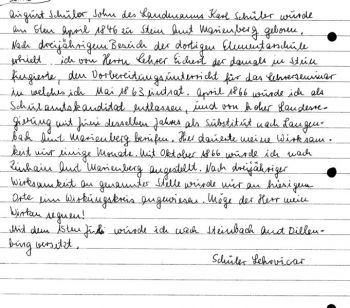 August Schüler, Sohn des Landmanns Karl Schüler wurde
am 5ten April 1846 zu Stein Amt Marienberg geboren.
Nach dreijährigem Besuch der dortigen Elementarschule
erhielt ich von Herrn Lehrer Eichert der damals in Stein
fungierte, den Vorbereitungsunterricht für das Lehrerseminar
in welches ich Mai 1863 eintrat. April 1866 wurde ich als
Schulamtskandidat entlassen, und von hoher Landesre-
gierung mit Juni desselben Jahres als Substitut nach Langen-
bach Amt Marienberg berufen. Hier dauerte meine Wirksam-
keit nur einige Monate. Mit Oktober 1866 wurde ich nach
Zinhain Amt Marienberg angestellt. Nach dreijähriger
Wirksamkeit an genannter Stelle wurde mir an hiesigem
Orte ein Wirkungskreis angewiesen. Möge der Herr mein
Wirken segnen!
Mit dem 15ten Juli wurde ich nach Steinbach Amt Dillen-
burg versetzt.
Schüler Lehrvicar